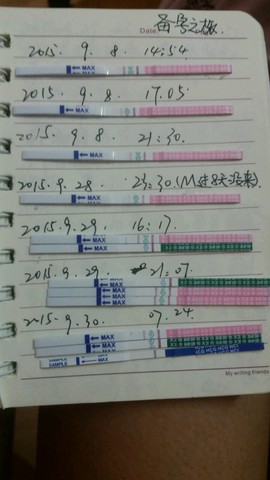 Date
备孕之旅.
2015. 9. 8. 14:54
MAX
2015. 9. 8. 17.05
MAX
2015. 9. 8. 21:30.
MAX
2015. 9. 28
MAX
2015. 9. 29. 16:17.
MAX
MAX
2015. 9. 29. 21:07.
MAX
MAX
MAX
2015. 9. 30. 07.24.
MAX
MAX
SAMPLE MAX
My writing friends